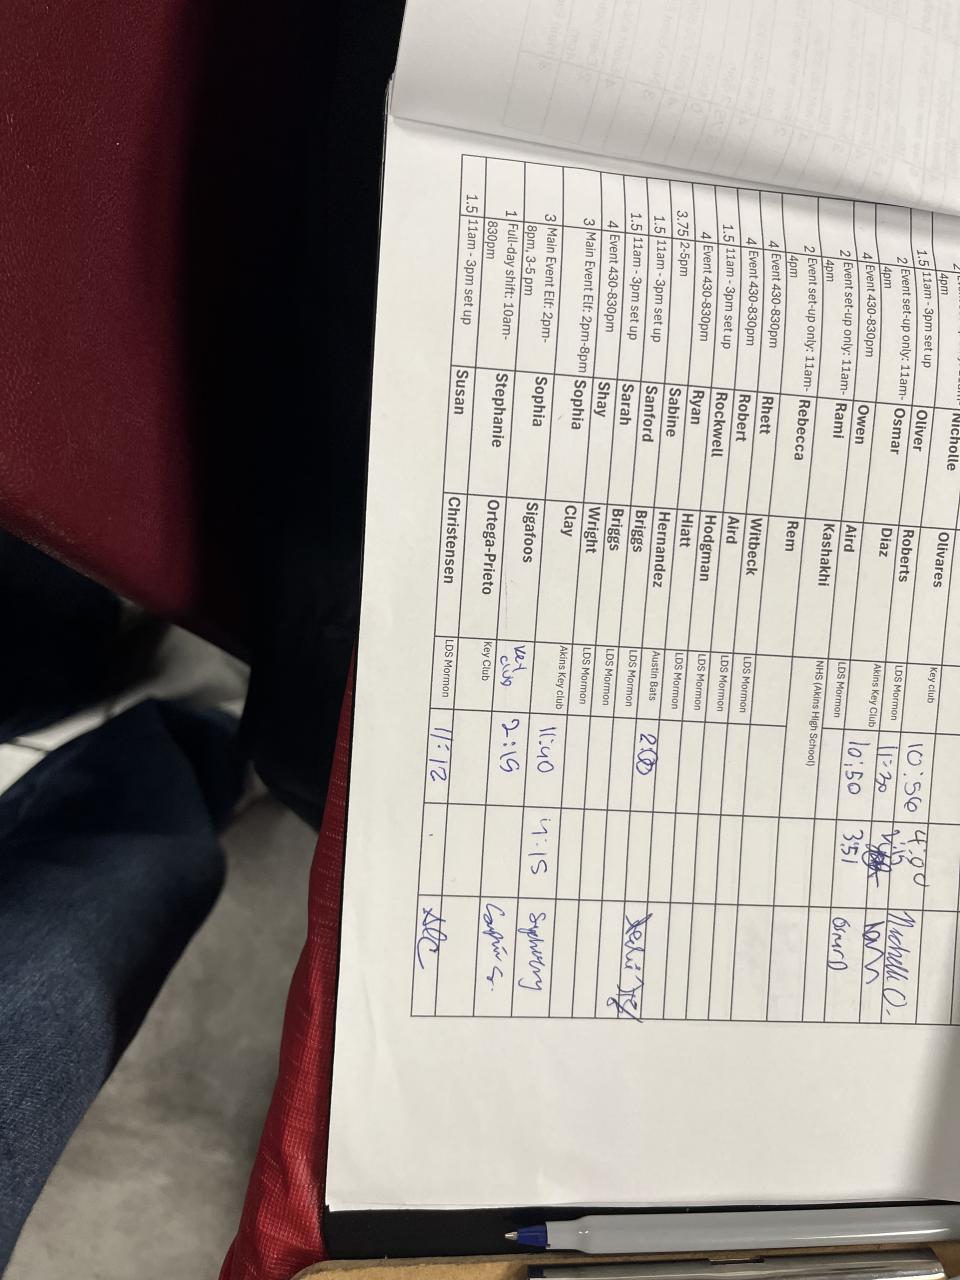 4pm Nicholle Olivares Key club 10:56 4:00 Michelle O.
1.5 11am - 3pm set up Oliver Roberts LDS Mormon 11:30
2 Event set-up only: 11am-
4pm Osmar Diaz Akins Key Club 10:50 3:51 Osmar D
4 Event 430-830pm Owen Aird LDS Mormon
2 Event set-up only: 11am-
4pm Rami Kashakhi NHS (Akins High School)
2 Event set-up only: 11am-
4pm Rebecca Rem
4 Event 430-830pm Rhett Witbeck LDS Mormon
4 Event 430-830pm Robert Aird LDS Mormon
1.5 11am - 3pm set up Rockwell Hodgman LDS Mormon
4 Event 430-830pm Ryan Hiatt LDS Mormon
3.75 2-5pm Sabine Hernandez Austin Bats 2:00
1.5 11am - 3pm set up Sanford Briggs LDS Mormon
1.5 11am - 3pm set up Sarah Briggs LDS Mormon
4 Event 430-830pm Shay Wright LDS Mormon
3 Main Event Elf: 2pm-8pm Sophia Clay Akins Key club 11:40 4:15
3 Main Event Elf: 2pm-
8pm, 3-5 pm Sophia Sigafoos Key club 2:19
1 Full-day shift: 10am-
830pm Stephanie Ortega-Prieto Key Club
1.5 11am - 3pm set up Susan Christensen LDS Mormon 11:12